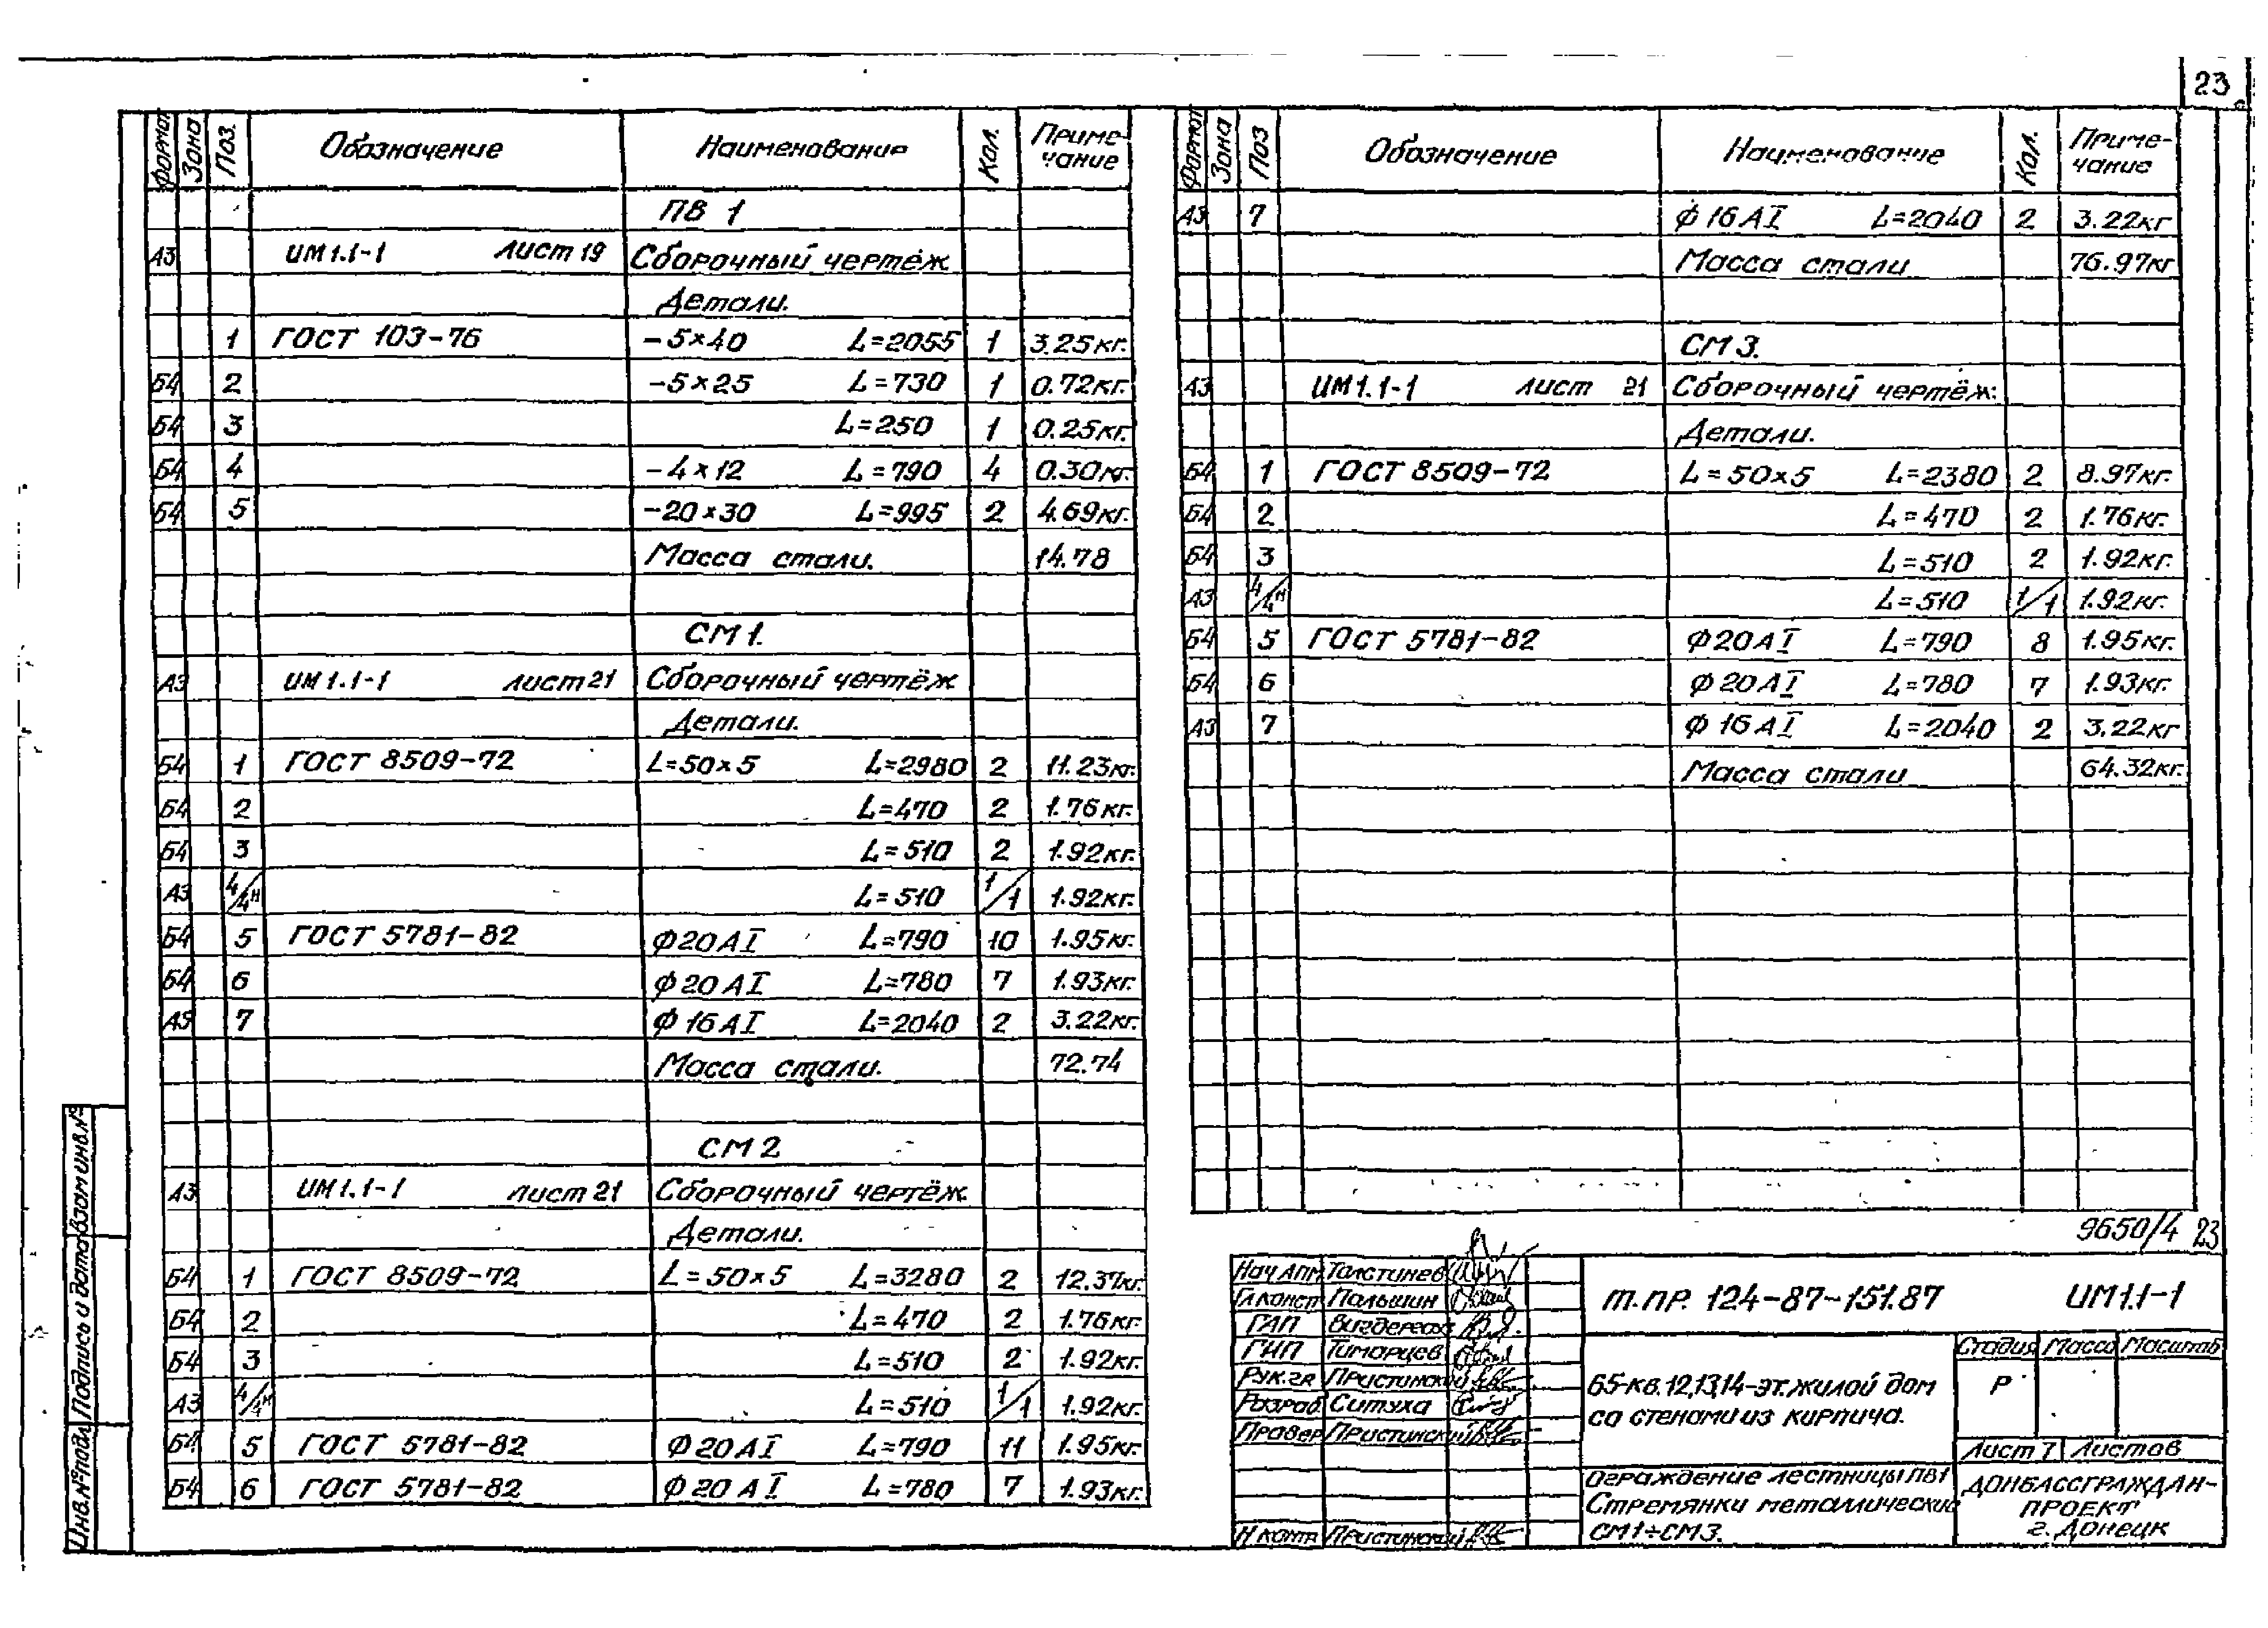 23
Формат Зона Поз. Обозначение Наименование Кол. Примечание
ПВ 1
А3 ИМ1.1-1 Лист 19 Сборочный чертёж
Детали.
1 ГОСТ 103-76 -5×40 L=2055 1 3.25кг.
Б4 2 -5×25 L=730 1 0.72кг.
Б4 3 L=250 1 0.25кг.
Б4 4 -4×12 L=790 4 0.30кг.
Б4 5 -20×30 L=995 2 4.69кг.
Масса стали. 14.78
СМ1.
А3 ИМ1.1-1 лист 21 Сборочный чертёж
Детали.
Б4 1 ГОСТ 8509-72 L=50×5 L=2980 2 11.23кг.
Б4 2 L=470 2 1.76кг.
Б4 3 L=510 2 1.92кг.
А3 4/4н L=510 1/1 1.92кг.
Б4 5 ГОСТ 5781-82 Ф20АI L=790 10 1.95кг.
Б4 6 Ф20АI L=780 7 1.93кг.
А3 7 Ф16АI L=2040 2 3.22кг.
Масса стали. 72.74
СМ2
А3 ИМ1.1-1 лист 21 Сборочный чертёж
Детали.
Б4 1 ГОСТ 8509-72 L=50×5 L=3280 2 12.37кг.
Б4 2 L=470 2 1.76кг.
Б4 3 L=510 2 1.92кг.
А3 4/4н L=510 1/1 1.92кг.
Б4 5 ГОСТ 5781-82 Ф20АI L=790 11 1.95кг.
Б4 6 ГОСТ 5781-82 Ф20АI L=780 7 1.93кг.
Формат Зона Поз Обозначение Наименование Кол. Примечание
А3 7 Ф16АI L=2040 2 3.22кг
Масса стали 76.97кг
СМ3.
А3 ИМ1.1-1 лист 21 Сборочный чертёж.
Детали.
Б4 1 ГОСТ 8509-72 L=50×5 L=2380 2 8.97кг.
Б4 2 L=470 2 1.76кг.
Б4 3 L=510 2 1.92кг.
А3 4/4н L=510 1/1 1.92кг.
Б4 5 ГОСТ 5781-82 Ф20АI L=790 8 1.95кг.
Б4 6 Ф20АI L=780 7 1.93кг.
А3 7 Ф16АI L=2040 2 3.22кг
Масса стали 64.32кг.
9650/4 23
Нач АПМ Толстинев
Гл конст Пальшин
ГАП
ГИП Тимарцев
Рук.гр Пристинский
Разраб Ситуха
Провер Пристинский
Н контр Пристинский
т.пр. 124-87-151.87 ИМ1.1-1
65-кв.12,13,14-эт.жилой дом
со стенами из кирпича.
Стадия Масса Масштаб
Р
Лист 7 Листов
Ограждение лестницы ПВ1
Стремянки металлические
СМ1÷СМ3.
ДОНБАССГРАЖДАН-
ПРОЕКТ
г. Донецк
Инв.№подл Подпись и дата Взам инв.№